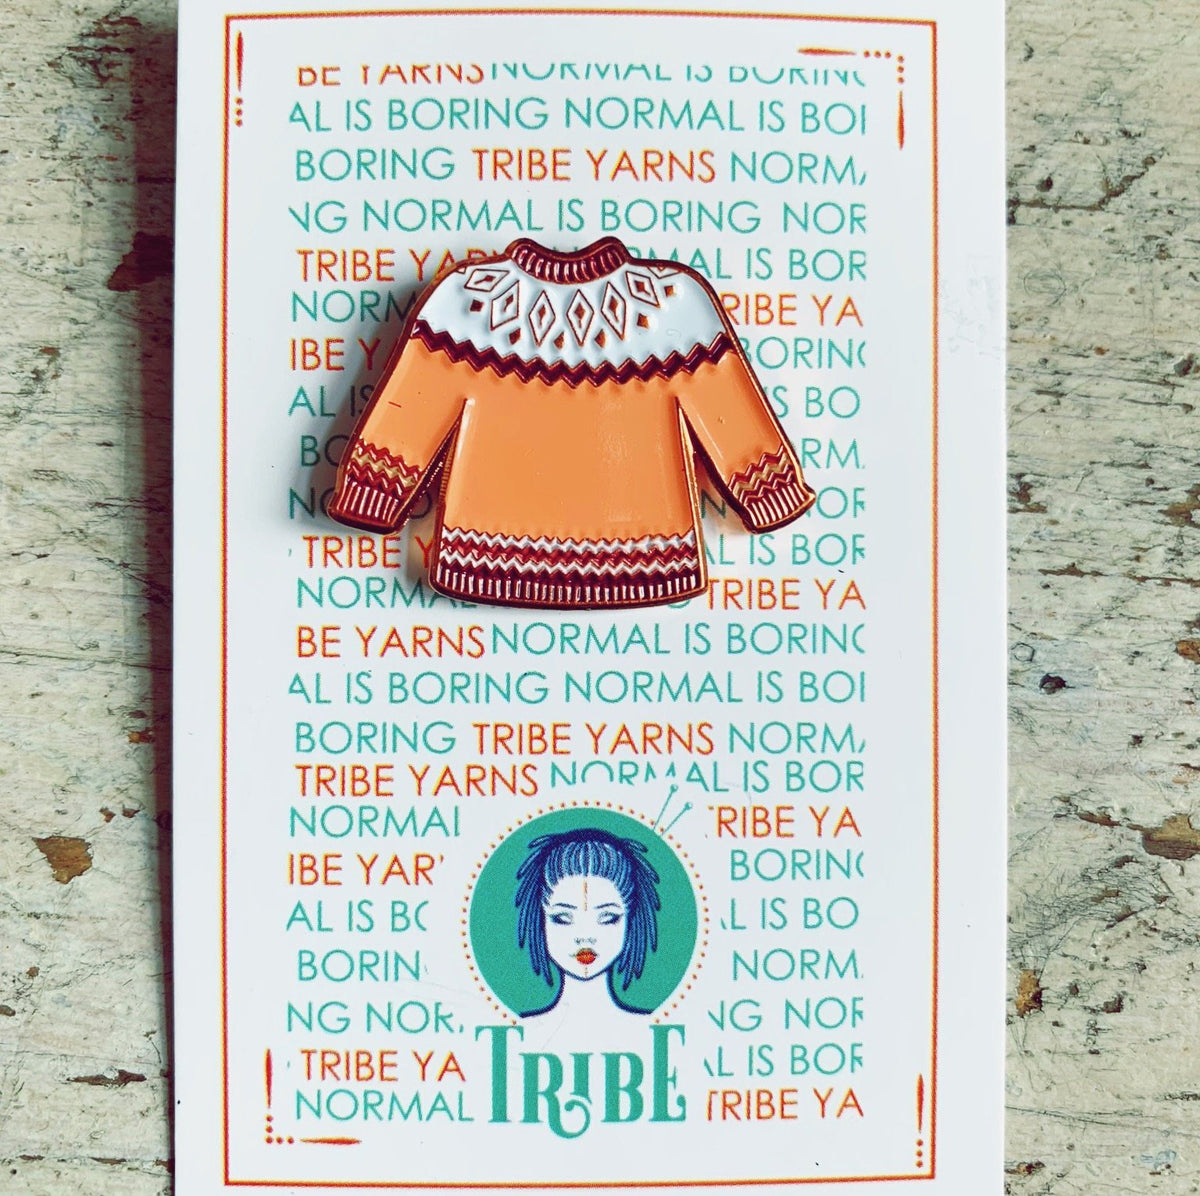 BE YARNS NORMAL IS BORING
AL IS BORING NORMAL IS BOI
BORING TRIBE YARNS NORM
NG NORMAL IS BORING NOR
TRIBE YAR MAL IS BOR
NORM RIBE YA
IBE Y BORIN
AL IS S BO
BO RM
NO N OR
TRIBE Y AL IS BOR
NORMA TRIBE YA
BE YARNS NORMAL IS BORING
AL IS BORING NORMAL IS BOI
BORING TRIBE YARNS NORM
TRIBE YARNS NORMAL IS BOR
NORMAL TRIBE YA
IBE YAR BORIN
AL IS BO L IS BO
BORIN NORM
NG NOR NG NOR
TRIBE YA L IS BOR
NORMAL TRIBE YA
TRIBE